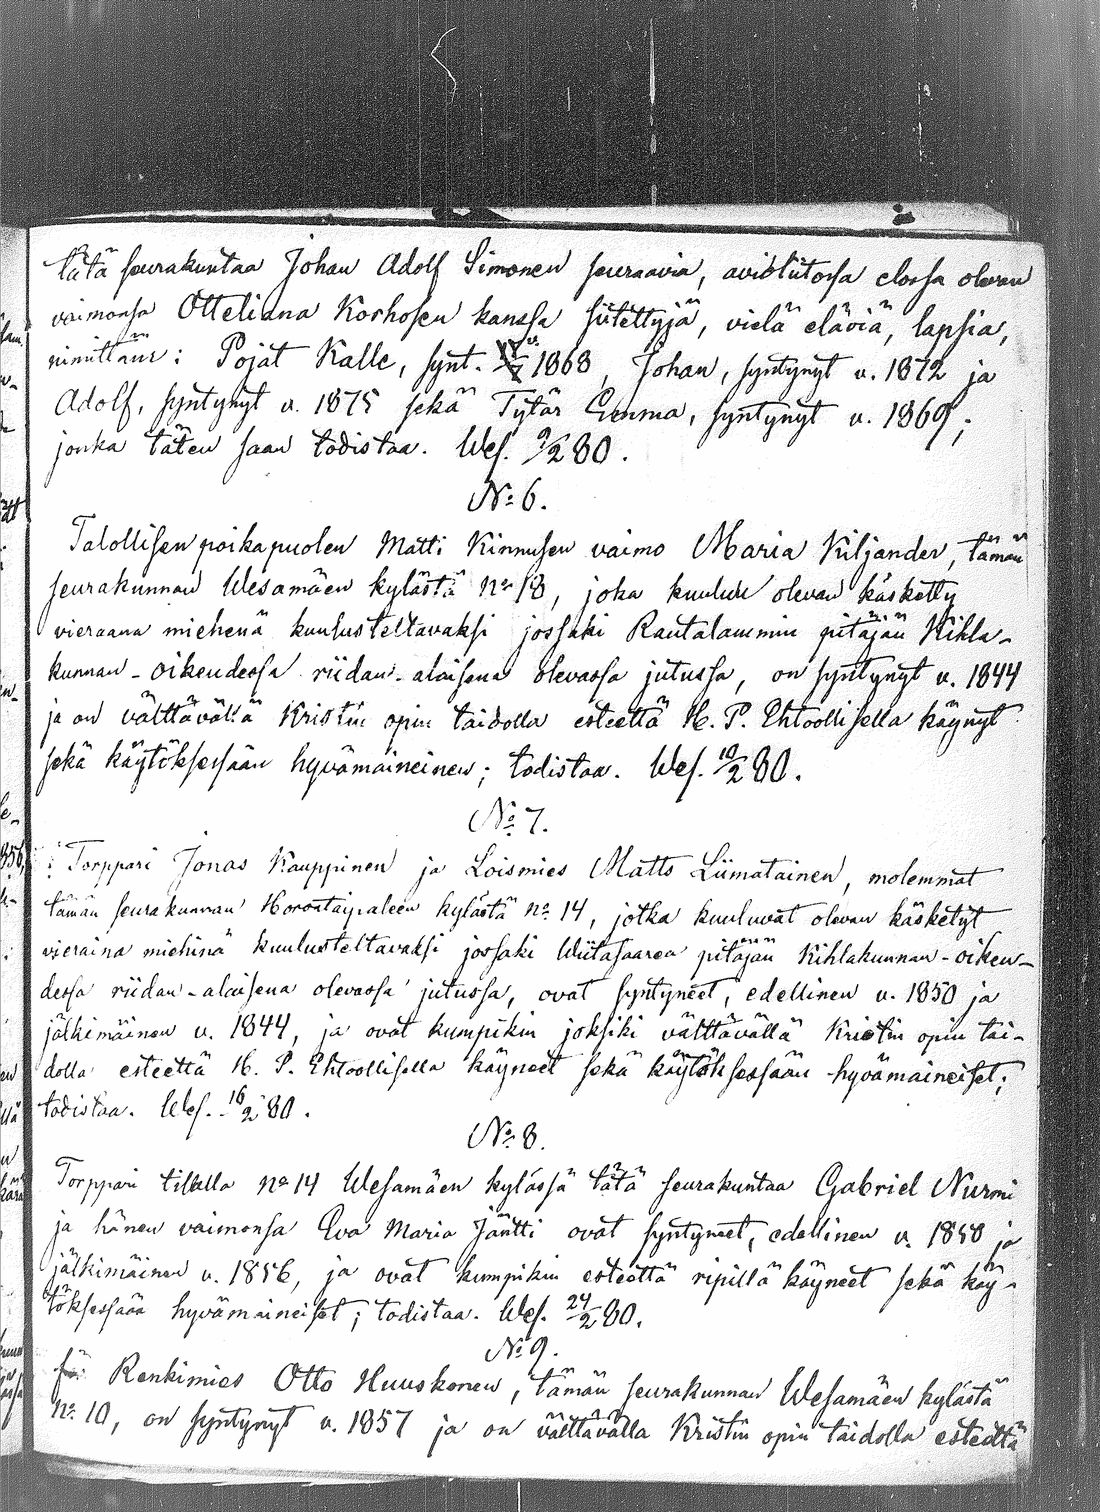 tätä seurakuntaa Johan Adolf Simonen seuraavia, aviolutossa elossa olevan
vaimonsa Otteliana Korhosen kanssa siitettyjä, vielä eläviä, lapsia,
nimittäin: Pojat Kalle, synt. v. 1868, Johan, syntynyt v. 1872 ja
Adolf, syntynyt v. 1875 sekä Tytär Emma, syntynyt v. 1869;
jonka täten saan todistaa. Wes. 9/2 80.
No 6.
Talollisen poikapuolen Matti Kinnusen vaimo Maria Kiljander, tämän
seurakunnan Wesamäen kylästä No 18, joka kuuluu olevan käsketty
vieraana miehenä kuulusteltavaksi jossaki Rautalammin pitäjän Kihla-
kunnan-oikeudessa riidan-alaisena olevassa jutussa, on syntynyt v. 1844
ja on välttävällä Kristin opin taidolla esteettä H. P. Ehtoollisella käynyt
sekä käytöksessään hyvämaineinen; todistaa. Wes. 10/2 80.
No 7.
Torppari Jonas Kauppinen ja Loismies Matts Liimatainen, molemmat
tämän seurakunnan Horontaipaleen kylästä No 14, jotka kuuluvat olevan käsketyt
vieraina miehinä kuulusteltavaksi jossaki Wiitasaaren pitäjän Kihlakunnan-oikeu-
dessa riidan-alaisena olevassa jutussa, ovat syntyneet, edellinen v. 1850 ja
jälkimäinen v. 1844, ja ovat kumpikin joksiki välttävällä Kristin opin tai-
dolla esteettä H. P. Ehtoollisella käyneet sekä käytöksessään hyvämaineiset;
todistaa. Wes. 16/2 80.
No 8.
Torppari tilalla No 14 Wesamäen kylässä tätä seurakuntaa Gabriel Nurmi
ja hänen vaimonsa Eva Maria Jäntti ovat syntyneet, edellinen v. 1850 ja
jälkimäinen v. 1856, ja ovat kumpikin esteettä ripillä käyneet sekä käy-
töksessään hyvämaineiset; todistaa. Wes. 24/2 80.
No 9.
Renkimies Otto Huuskonen, tämän seurakunnan Wesamäen kylästä
No 10, on syntynyt v. 1857 ja on välttävällä Kristin opin taidolla esteettä